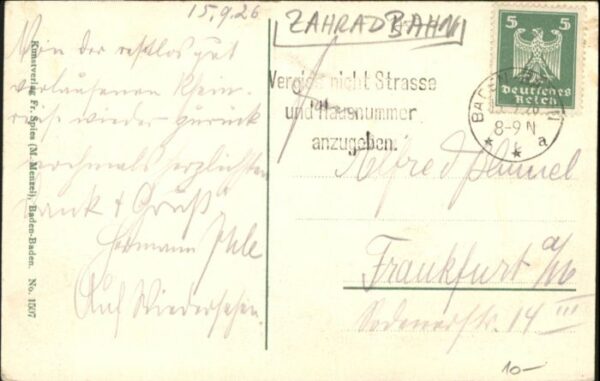 15.9.26
ZAHRADBAHN
Von der restlos gut
verlaufenen Rhein-
reise wieder zurück
nochmals herzlichsten
Dank & Gruß
Hermann Ihle
Auf Wiedersehen
Kunstverlag Fr. Spies (M. Menzel), Baden-Baden. No. 1507
Vergiss nicht Strasse
und Hausnummer
anzugeben.
5 5
Deutsches
Reich
BADEN
8-9 N
* * a
Alfred
Frankfurt a/M
14 III
10-